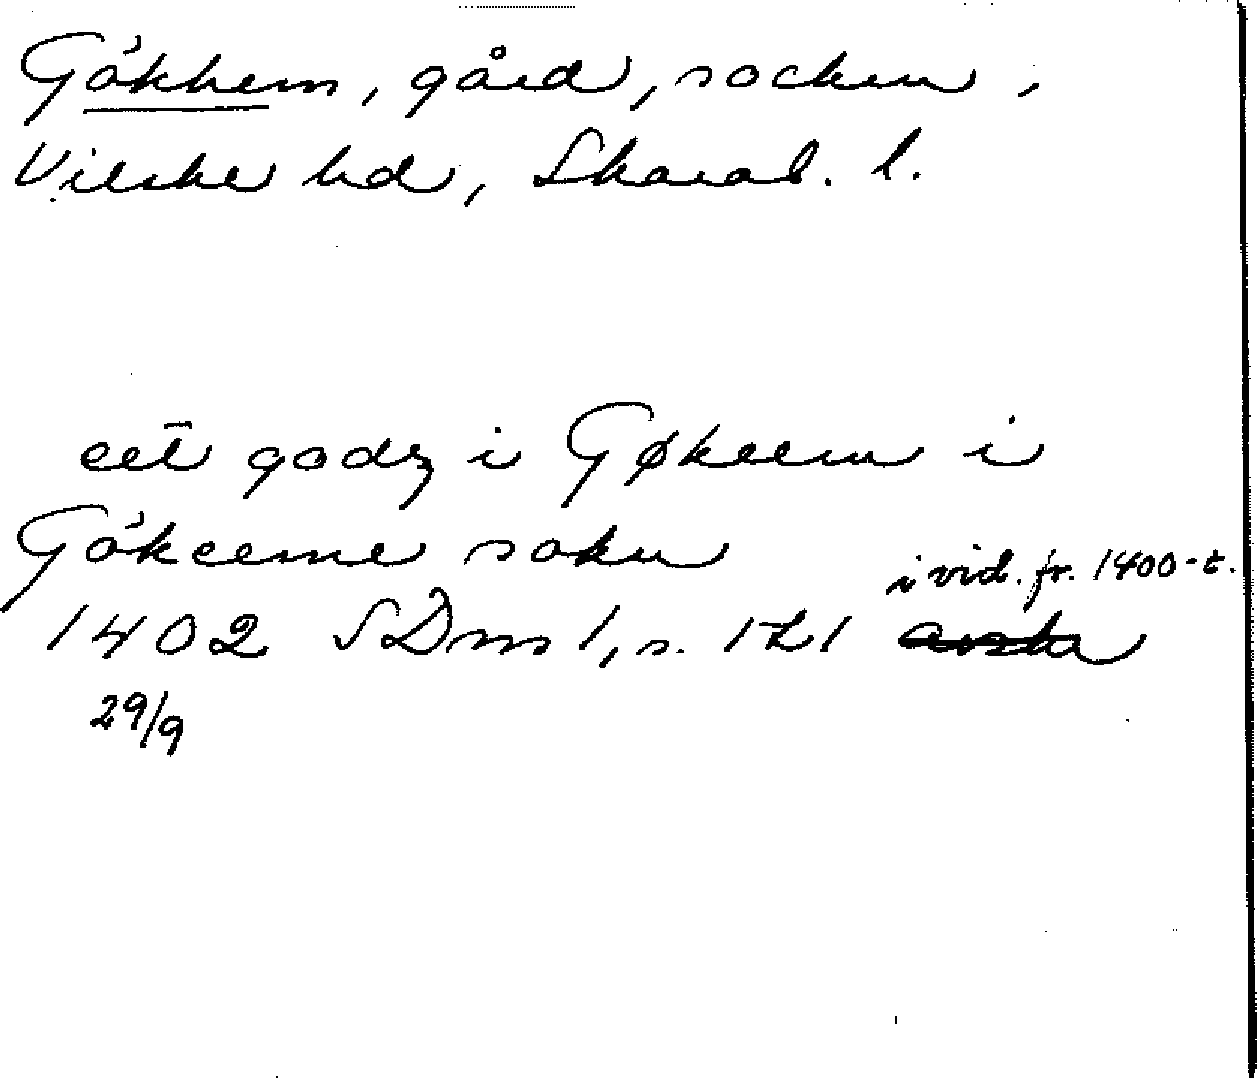 Gökhem, gård, socken,
Vilske hd, Skarab. l.
eet godz i Gøkeem i
Gökeeme sokn
i vid. fr. 1400-t.
1402 SDns 1, s. 121 avskr
29/9